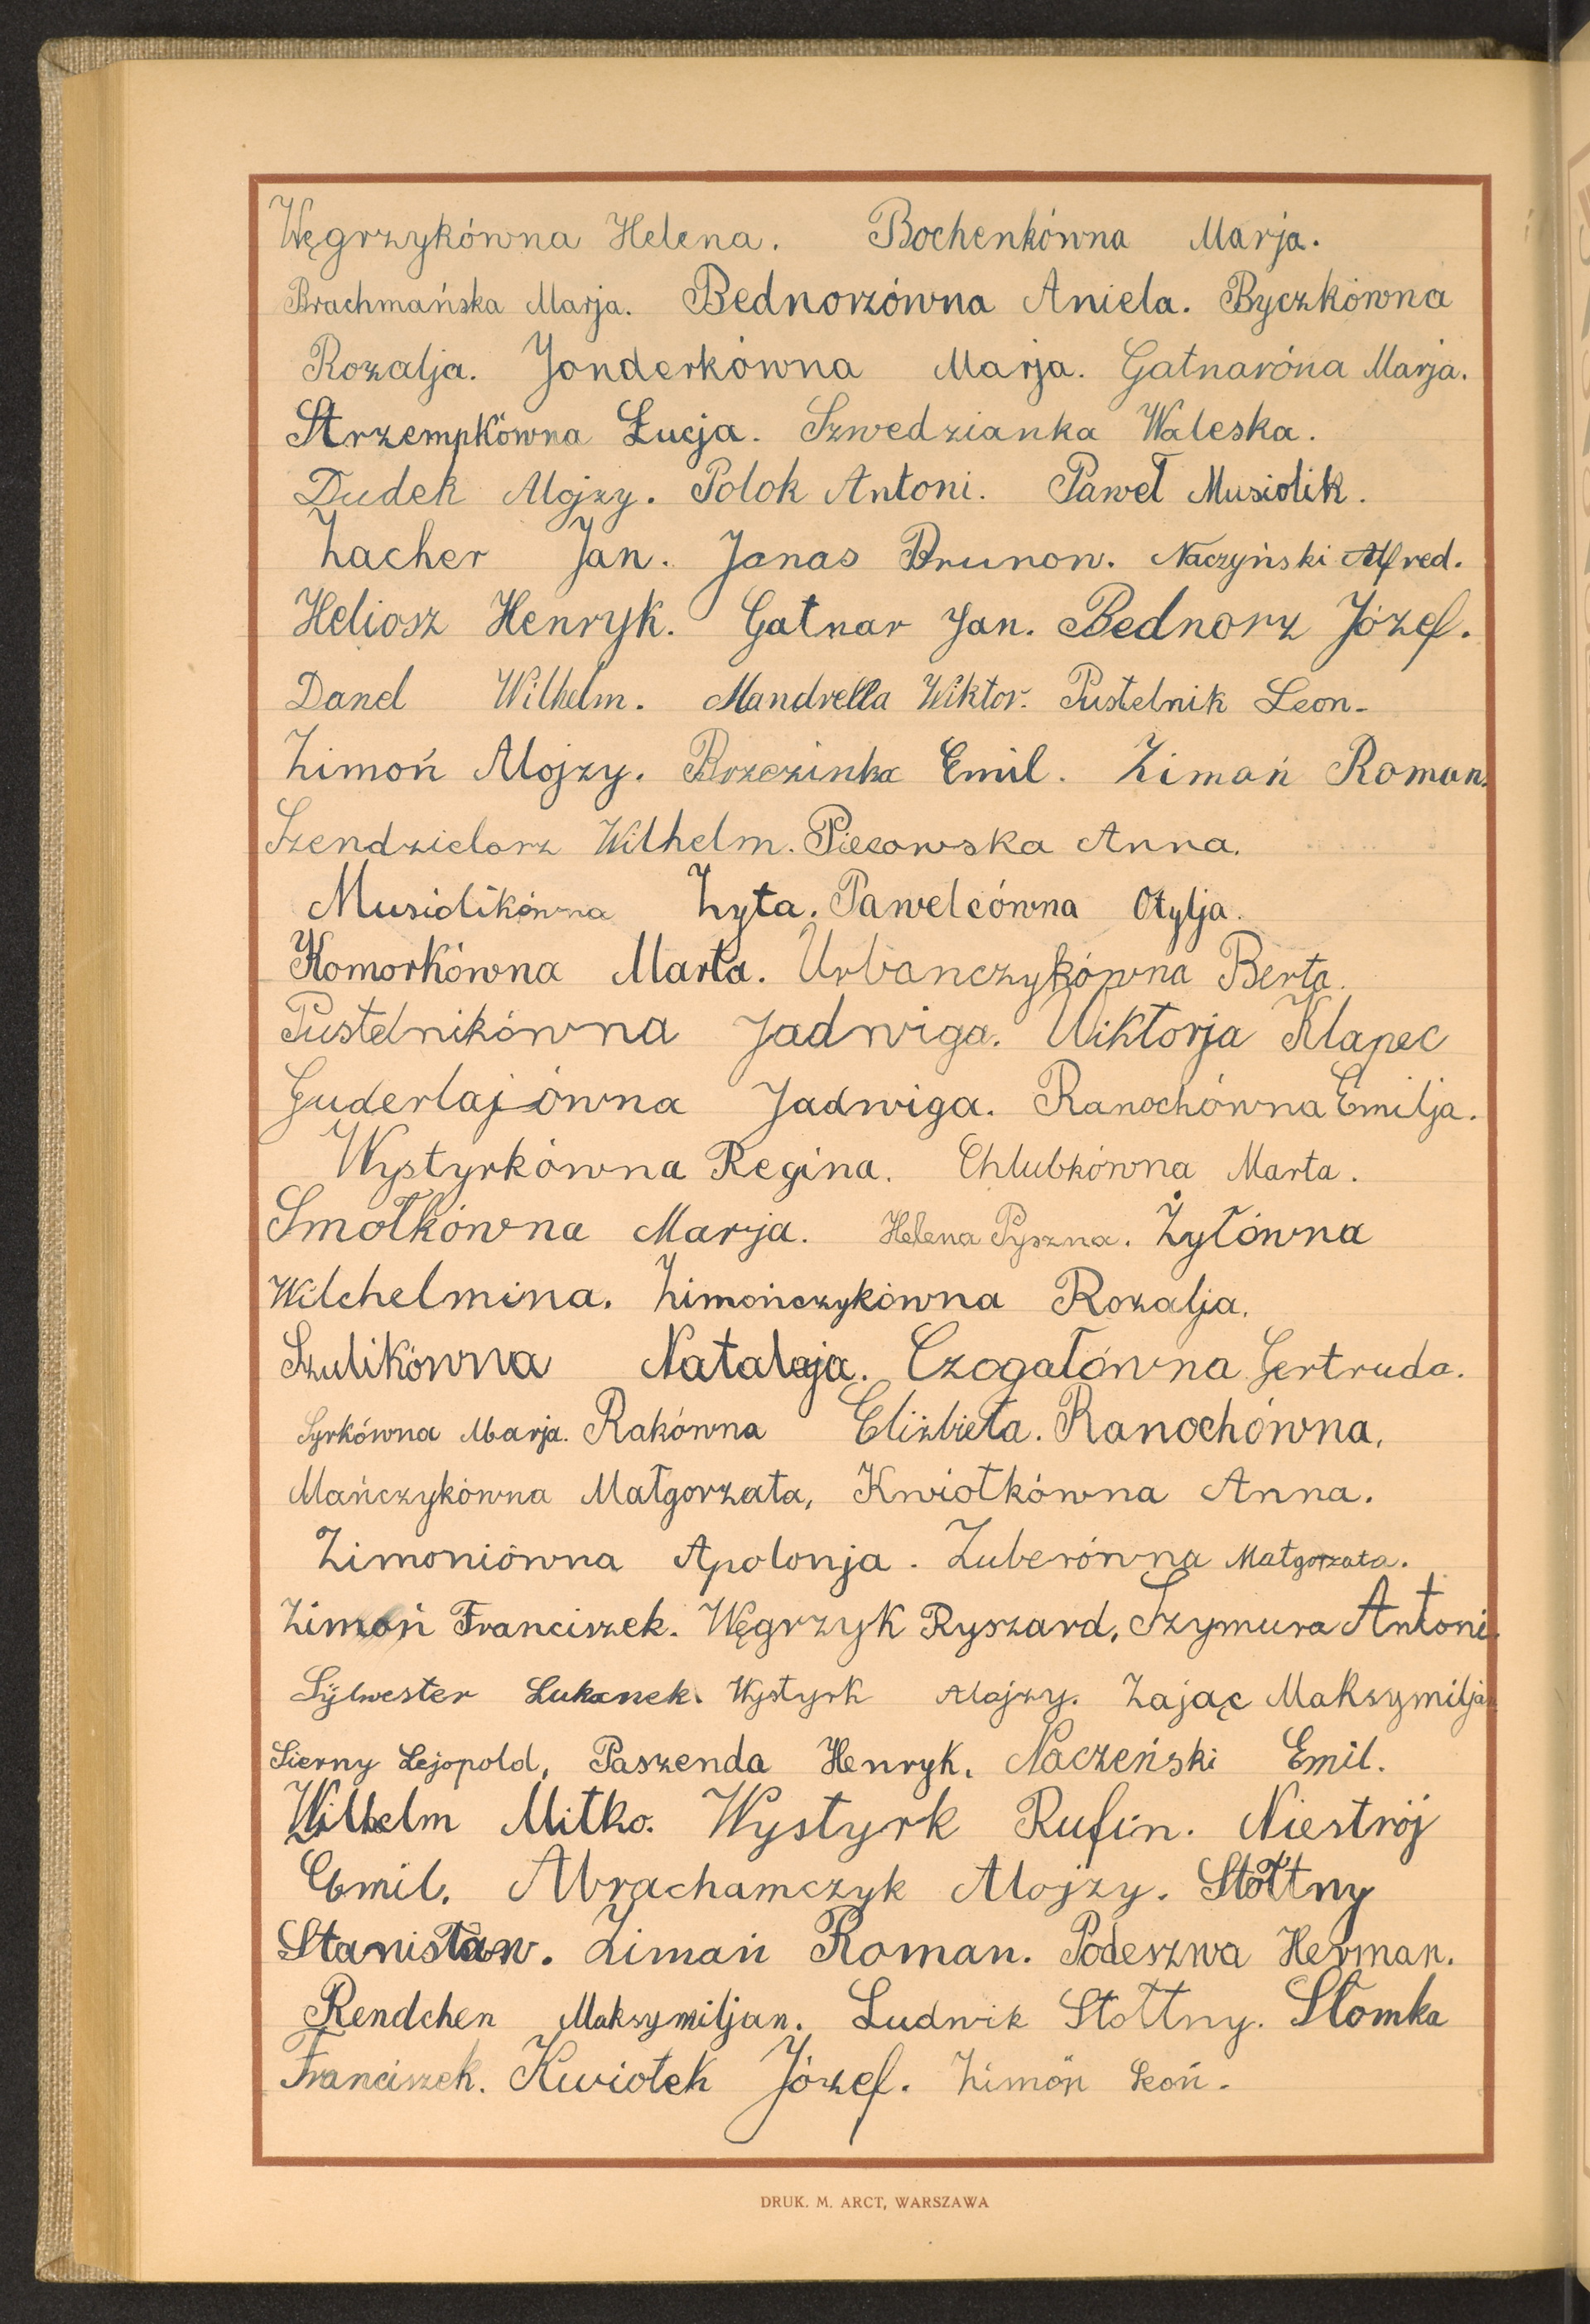 Węgrzykówna Helena. Bochenkówna Marja.
Brachmańska Marja. Bednorzówna Aniela. Byczkówna
Rozalja. Jonderkówna Marja. Gatnaróna Marja.
Strzempkówna Łucja. Szwedzianka Waleska.
Dudek Alojzy. Polok Antoni. Paweł Musiolik.
Zacher Jan. Jonas Brunon. Naczyński Alfred.
Heliosz Henryk. Gatnar Jan. Bednorz Józef.
Danel Wilhelm. Mandrella Wiktor. Pustelnik Leon.
Zimoń Alojzy. Brzezinka Emil. Zimoń Roman.
Szendzielorz Wilhelm. Piecowska Anna.
Musiolikówna Zyta. Pawelcówna Otylja.
Komorkówna Marta. Urbanczykówna Berta.
Pustelnikówna Jadwiga. Wiktorja Klapec
Guderlajówna Jadwiga. Ranochówna Emilja.
Wystyrkówna Regina. Chlubkówna Marta.
Smołkówna Marja. Helena Pyszna. Żyłówna
Wilchelmina. Zimończykówna Rozalja.
Szulikówna Natalja. Czogałówna Gertruda.
Syrkówna Marja. Rakówna Elizbieta. Ranochówna,
Mańczykówna Małgorzata, Kwiotkówna Anna.
Zimoniówna Apolonja. Zuberówna Małgorzata.
Zimoń Franciszek. Węgrzyk Ryszard, Szymura Antoni.
Sylwester Lukanek. Wystyrk Alojzy. Zając Maksymiljan
Sierny Lejopold, Paszenda Henryk, Naczeński Emil.
Wilhelm Mitko. Wystyrk Rufin. Niestrój
Emil, Abrachamczyk Alojzy. Stołtny
Stanisław. Zimoń Roman. Podeszwa Herman.
Rendchen Maksymiljan. Ludwik Stołtny. Słomka
Franciszek. Kwiotek Józef. Zimoń Leoń.
DRUK. M. ARCT, WARSZAWA